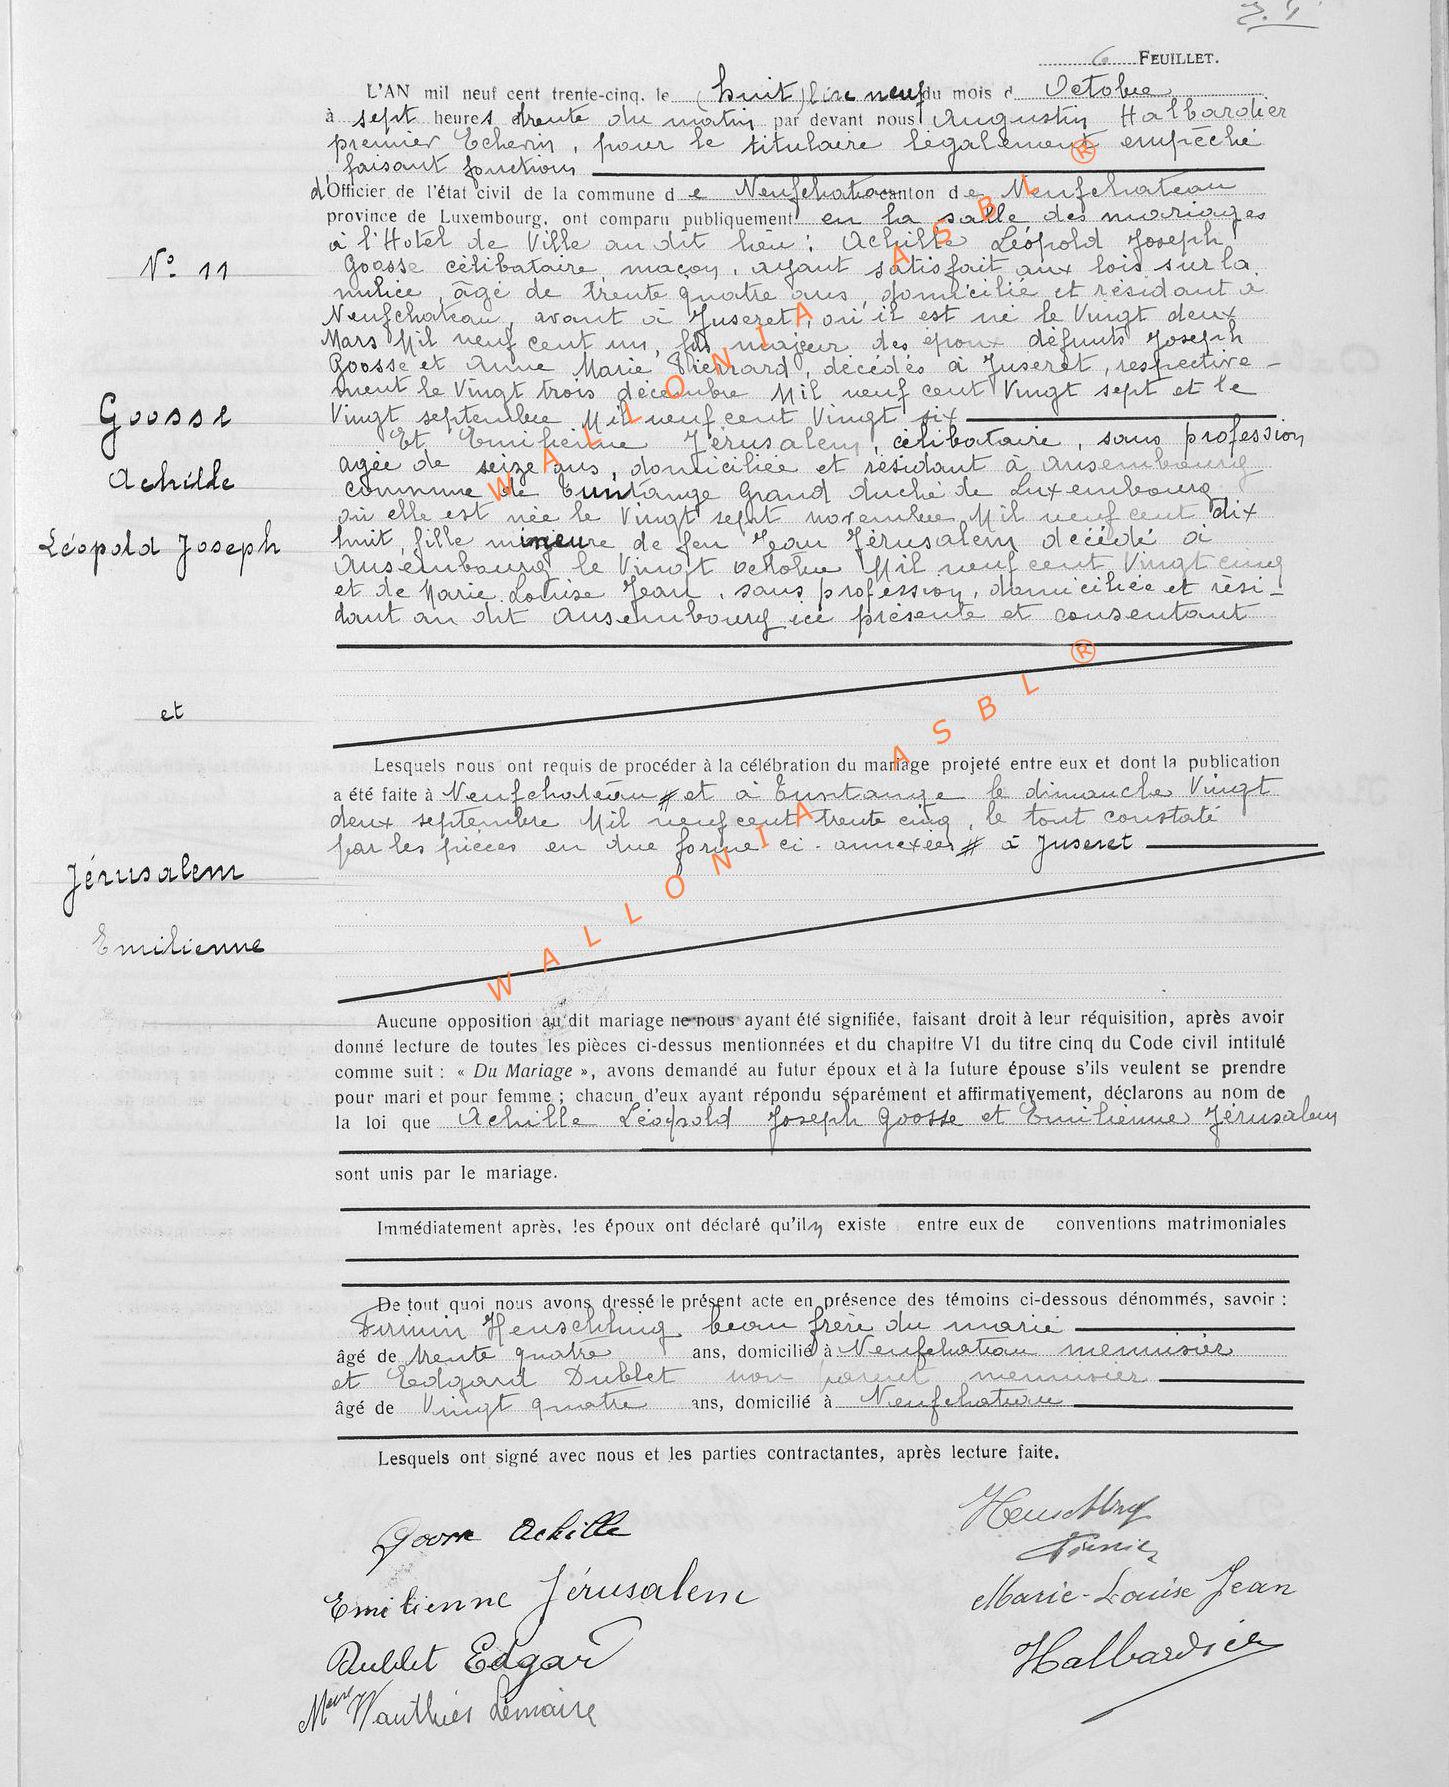 6 FEUILLET.
L'AN mil neuf cent trente-cinq, le (huit) lire neuf du mois d Octobre
à sept heures trente du matin par devant nous Augustin Halbardier
premier Echevin, pour le titulaire légalement empêché
faisant fonctions
d'Officier de l'état civil de la commune d e Neufchateau canton d e Neufchateau
province de Luxembourg, ont comparu publiquement en la salle des mariages
à l'Hotel de Ville au dit lieu : Achille Léopold Joseph
N° 11
Goosse célibataire, maçon, ayant satisfait aux lois sur la
milice, âgé de trente quatre ans, domicilié et résidant à
Neufchateau, avant à Juseret, où il est né le Vingt deux
Mars Mil neuf cent un, fils majeur des époux défunts Joseph
Goosse et Anne Marie Pierrard, décédés à Juseret, respective-
ment le Vingt trois décembre Mil neuf cent Vingt sept et le
Vingt septembre Mil neuf cent Vingt six
Goosse
Achille
Léopold Joseph
Et Emilienne Jérusalem, célibataire, sans profession
agée de seize ans, domiciliée et résidant à Ansembourg
commune de Tuntange Grand duché de Luxembourg
où elle est née le Vingt sept novembre Mil neuf cent dix
huit, fille mineure de feu Jean Jérusalem décédé à
Ansembourg le Vingt octobre Mil neuf cent Vingt cinq
et de Marie Louise Jean, sans profession, domiciliée et rési-
dant au dit Ansembourg ici présente et consentant
et
Lesquels nous ont requis de procéder à la célébration du mariage projeté entre eux et dont la publication
a été faite à Neufchateau # et à Tuntange le dimanche Vingt
deux septembre Mil neuf cent trente cinq, le tout constaté
par les pièces en due forme ci-annexées # à Juseret
Jérusalem
Emilienne
Aucune opposition au dit mariage ne nous ayant été signifiée, faisant droit à leur réquisition, après avoir
donné lecture de toutes les pièces ci-dessus mentionnées et du chapitre VI du titre cinq du Code civil intitulé
comme suit : « Du Mariage », avons demandé au futur époux et à la future épouse s'ils veulent se prendre
pour mari et pour femme ; chacun d'eux ayant répondu séparément et affirmativement, déclarons au nom de
la loi que Achille Léopold Joseph Goosse et Emilienne Jérusalem
sont unis par le mariage.
Immédiatement après, les époux ont déclaré qu'il n existe entre eux de conventions matrimoniales
De tout quoi nous avons dressé le présent acte en présence des témoins ci-dessous dénommés, savoir :
Firmin Heuschling beau frère du marié
âgé de trente quatre ans, domicilié à Neufchateau menuisier
et Edgard Dublet non parent menuisier
âgé de Vingt quatre ans, domicilié à Neufchateau
Lesquels ont signé avec nous et les parties contractantes, après lecture faite.
Goosse Achille
Heuschling
Firmin
Emilienne Jérusalem
Marie-Louise Jean
Dublet Edgar
Halbardier
Wauthier Lemaire
WALLONIA ASBL ®
WALLONIA ASBL ®